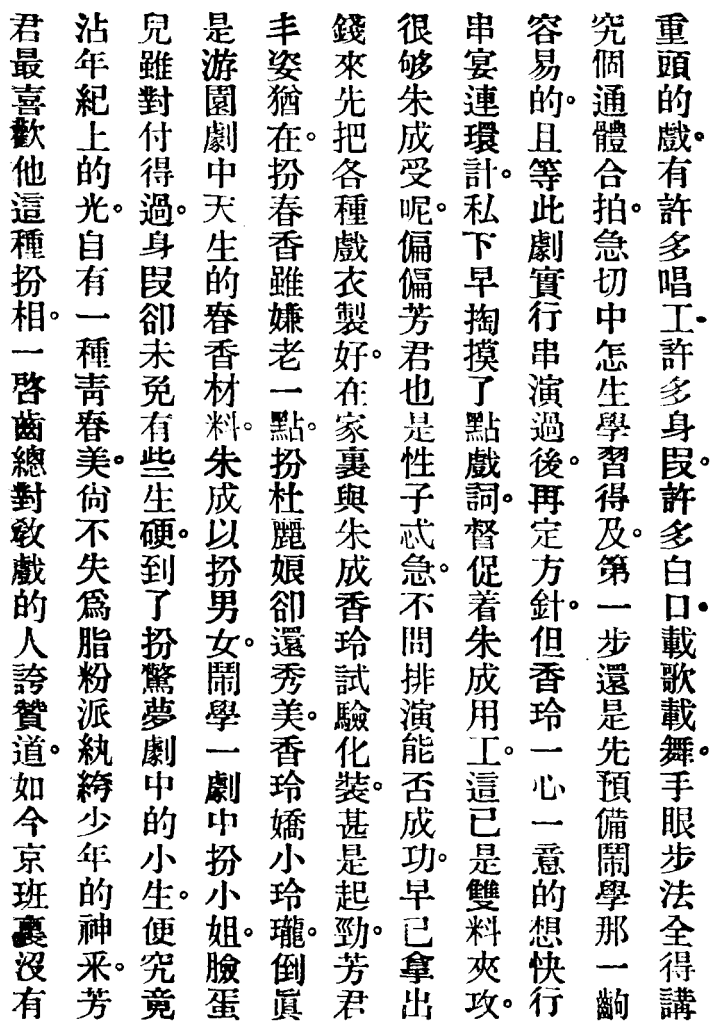 重頭的戲。有許多唱工。許多身段。許多白口。載歌載舞。手眼步法全得講
究個通體合拍。急切中怎生學習得及。第一步還是先預備鬧學那一齣
容易的。且等此劇實行串演過後。再定方針。但香玲一心一意的想快行
串宴連環計。私下早掏摸了點戲詞。督促着朱成用工。這已是雙料夾攻。
很够朱成受呢。偏偏芳君也是性子忒急。不問排演能否成功。早已拿出
錢來先把各種戲衣製好。在家裏與朱成香玲試驗化裝。甚是起勁。芳君
丰姿猶在。扮春香雖嫌老一點。扮杜麗娘卻還秀美。香玲嬌小玲瓏。倒眞
是游園劇中天生的春香材料。朱成以扮男女。鬧學一劇中扮小姐。臉蛋
兒雖對付得過。身段卻未免有些生硬。到了扮驚夢劇中的小生。便究竟
沾年紀上的光。自有一種靑春美。尙不失爲脂粉派紈綺少年的神采。芳
君最喜歡他這種扮相。一啓齒總對敎戲的人誇贊道。如今京班裏沒有